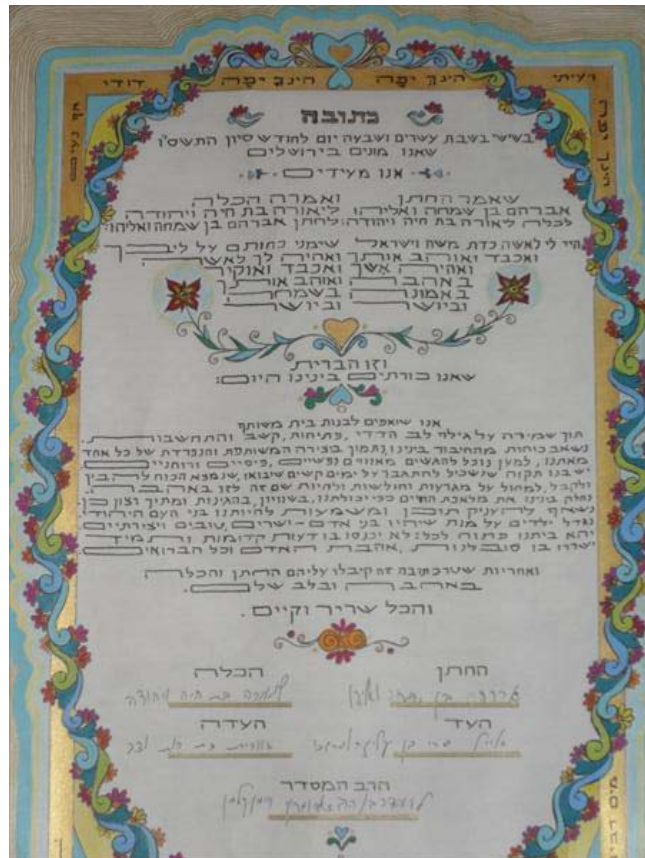 רעיתי הינך יפה הינך יפה דודי
אף נעים
הינך יפה
כתובה
בשישי בשבת עשרים ושבעה יום לחודש סיון התשס"ו
שאנו מונים בירושלים
אנו מעידים
שאמר החתן ואמרה הכלה
אברהם בן שמחה ואליהו ליאורה בת חיה ויהודה
לכלה ליאורה בת חיה ויהודה: לחתן אברהם בן שמחה ואליהו:
היי לי לאשה כדת משה וישראל שימני כחותם על ליבך
ואכבד ואוהב אותך ואהיה לך לאשה
ואהיה אשך ואכבד ואוקיר
באהבה ואוהב אותך
באמונה בשמחה
וביושר וביושר
וזו הברית
שאנו כורתים בינינו היום:
אנו שואפים לבנות בית משותף
תוך שמירה על גילוי לב הדדי, פתיחות, קשב והתחשבות.
נשאב כוחות מהחיבור בינינו, נתמוך ביצירה המשותפת והנפרדת של כל אחד
מאתנו, למען נוכל להגשים מאוויים נפשיים, פיסיים ורוחניים.
יש בנו תקוה שנשכיל להתגבר על ימים קשים שיבואו, שנמצא הכוח להבין
ולקבל, למחול על מגרעות וחולשות, ולחיות שם זה לזו באהבה.
נחלק בינינו את מלאכת החיים כפי יכולתנו, בשוויון, בהגינות, ומתוך רצון כן.
נשאף להעניק תוכן ומשמעות להיותנו בני העם היהודי.
נגדל ילדים על מנת שיהיו בני אדם - ישרים, טובים ויצירתיים.
יהא ביתנו פתוח לכל: לא יכנסו בו דעות קדומות ותמיד
ישרו בו סובלנות, אהבת האדם וכל הברואים.
ואחריות שטר כתובה זה קיבלו עליהם החתן והכלה
באהבה ובלב שלם.
והכל שריר וקיים.
החתן הכלה
אברהם בן שמחה ואליהו ליאורה בת חיה ויהודה
העד העדה
הרב המסדר
מים רבים